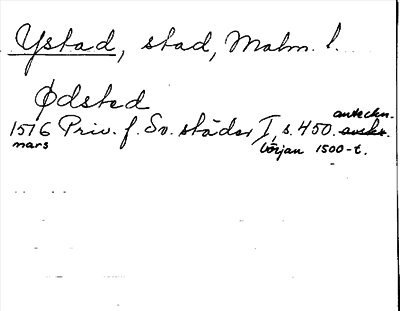 Ystad, stad, Malm. l.
Ødsted
anteckn.
1516 Priv. f. Sv. städer I, s. 450. avskr.
mars början 1500-t.